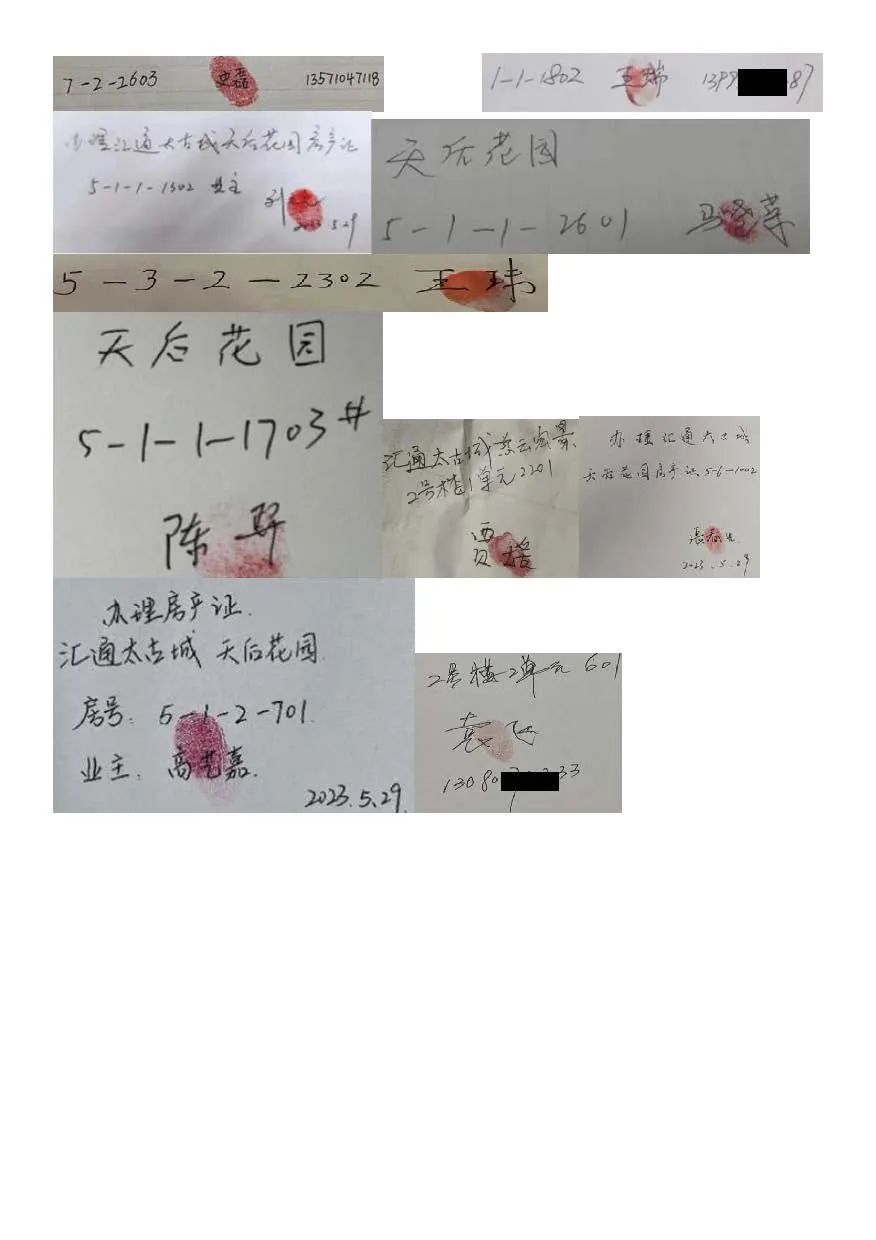 7-2-2603 史磊 13571047118
1-1-1802 王瑞 1399 87
办理汇通太古城天后花园房产证
5-1-1-1302 业主
刘
2023.5.29
天后花园
5-1-1-2601 马 萍
5-3-2-2302 王玮
天后花园
5-1-1-1703#
陈
汇通太古城 景
2号楼1单元2201
贾
办理汇通太古城
天后花园房产证 5-6-1002
张春
2023.5.29
办理房产证.
汇通太古城 天后花园
房号: 5-1-2-701.
业主. 高艺嘉.
2023.5.29.
2号楼2单元601
袁飞
13080 33